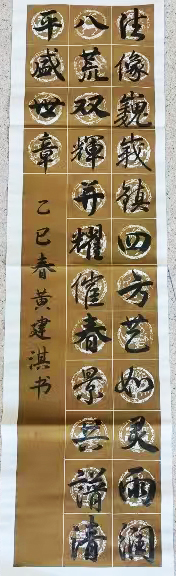 法像巍峩镇四方艺如灵雨润
八荒双輝并耀催春景共谱清
平盛世章
乙巳春黄建淇书